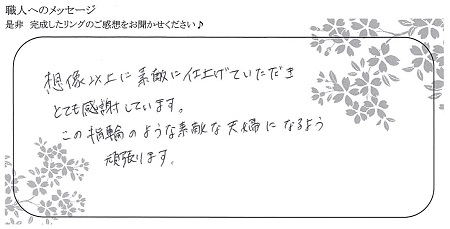 職人へのメッセージ
是非 完成したリングのご感想をお聞かせください♪
想像以上に素敵に仕上げていただき
とても感謝しています。
この指輪のような素敵な夫婦になるよう
頑張ります。